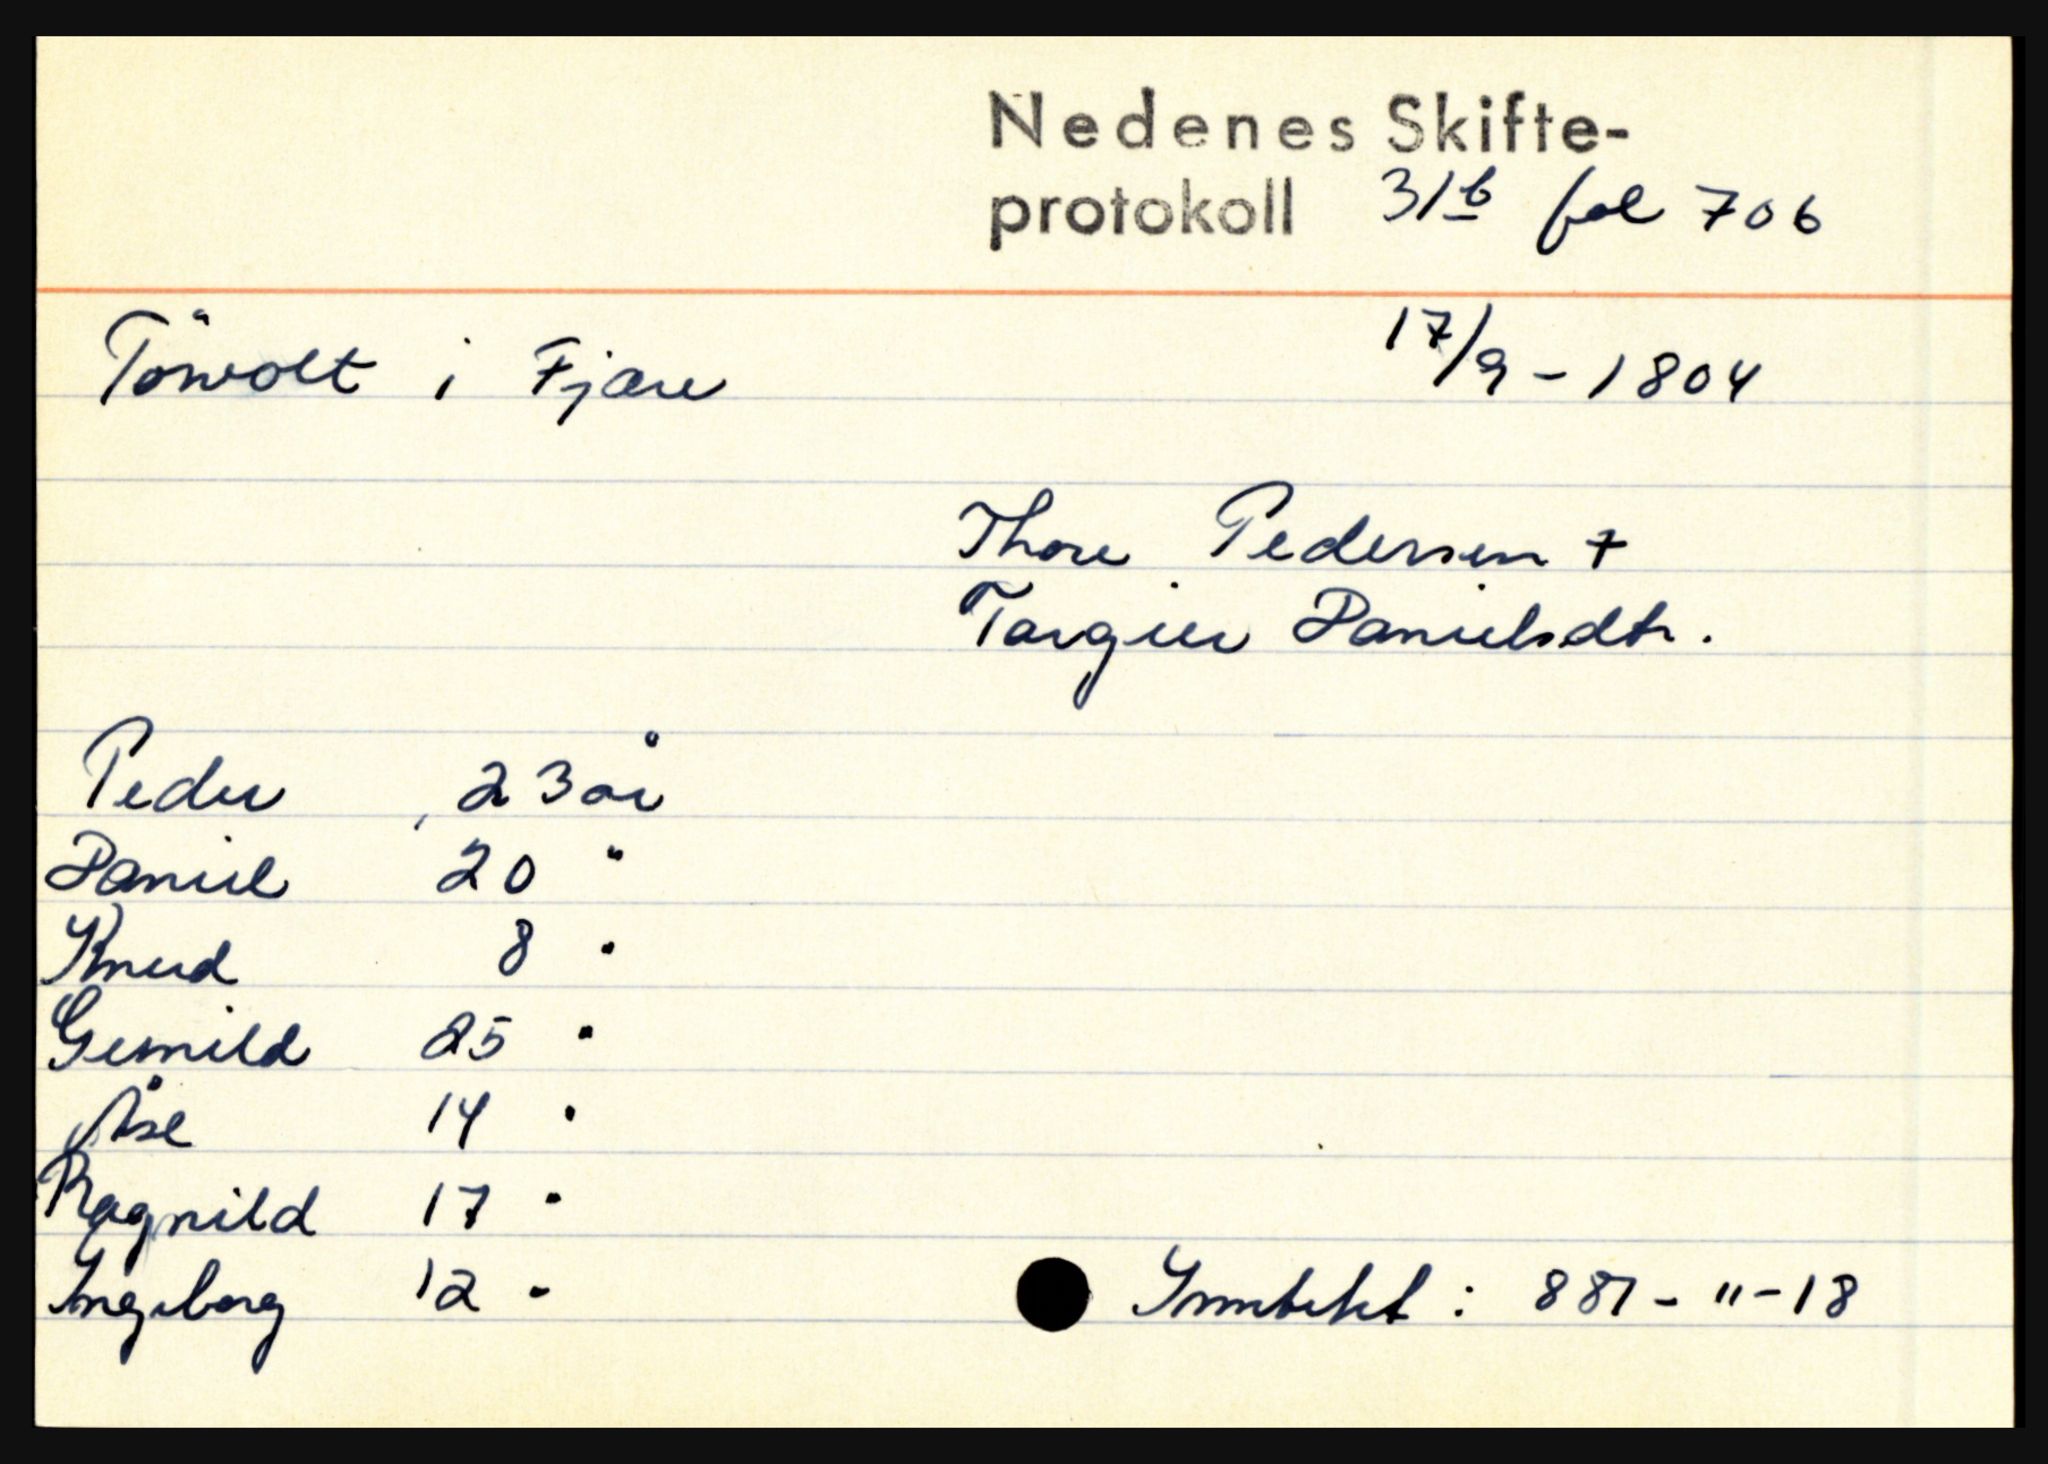 Nedenes Skifte-
protokoll 31b fol 706
Törwolt i Fjære 17/9 - 1804
Thore Pedersen +
Targier Danielsdtr.
Peder, 23 år
Daniel 20 "
Knud 8 "
Gunild 25 "
Åse 14 "
Ragnild 17 "
Ingeborg 12 "
Inntekt : 887 - " - 18